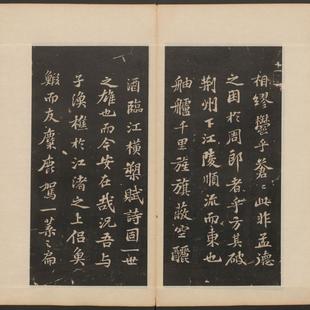 相繆鬱乎蒼〻此非孟德
之困於周郎者乎方其破
荊州下江陵順流而東也
舳艫千里旌旗蔽空釃
酒臨江橫槊賦詩固一世
之雄也而今安在哉況吾與
子漁樵於江渚之上侶魚
鰕而友麋鹿駕一葉之扁